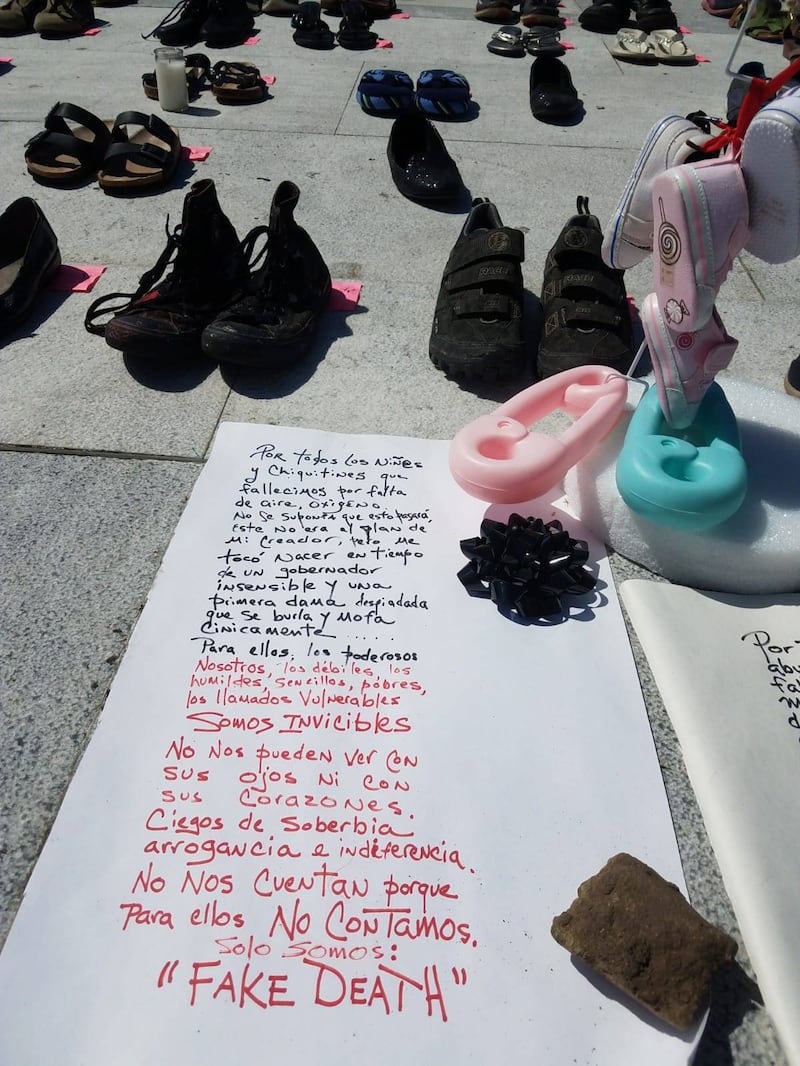 Por todos los Niñ@s
y Chiquitines que
fallecimos por falta
de aire, oxígeno
No se suponía que esto pasará,
este no era el plan de
Mi Creador, pero me
tocó Nacer en tiempo
de un gobernador
insensible y una
primera dama despiadada
que se burla y mofa
Cinicamente ......
Para ellos, los poderosos
Nosotros, los débiles, los
humildes, sencillos, pobres,
los llamados Vulnerables
Somos INVICIBLES
No Nos pueden ver con
sus ojos ni con
sus corazones.
Ciegos de soberbia
arrogancia e indeferencia.
No Nos Cuentan porque
Para ellos No Contamos.
Solo somos:
"FAKE DEATH"
Por
RACE